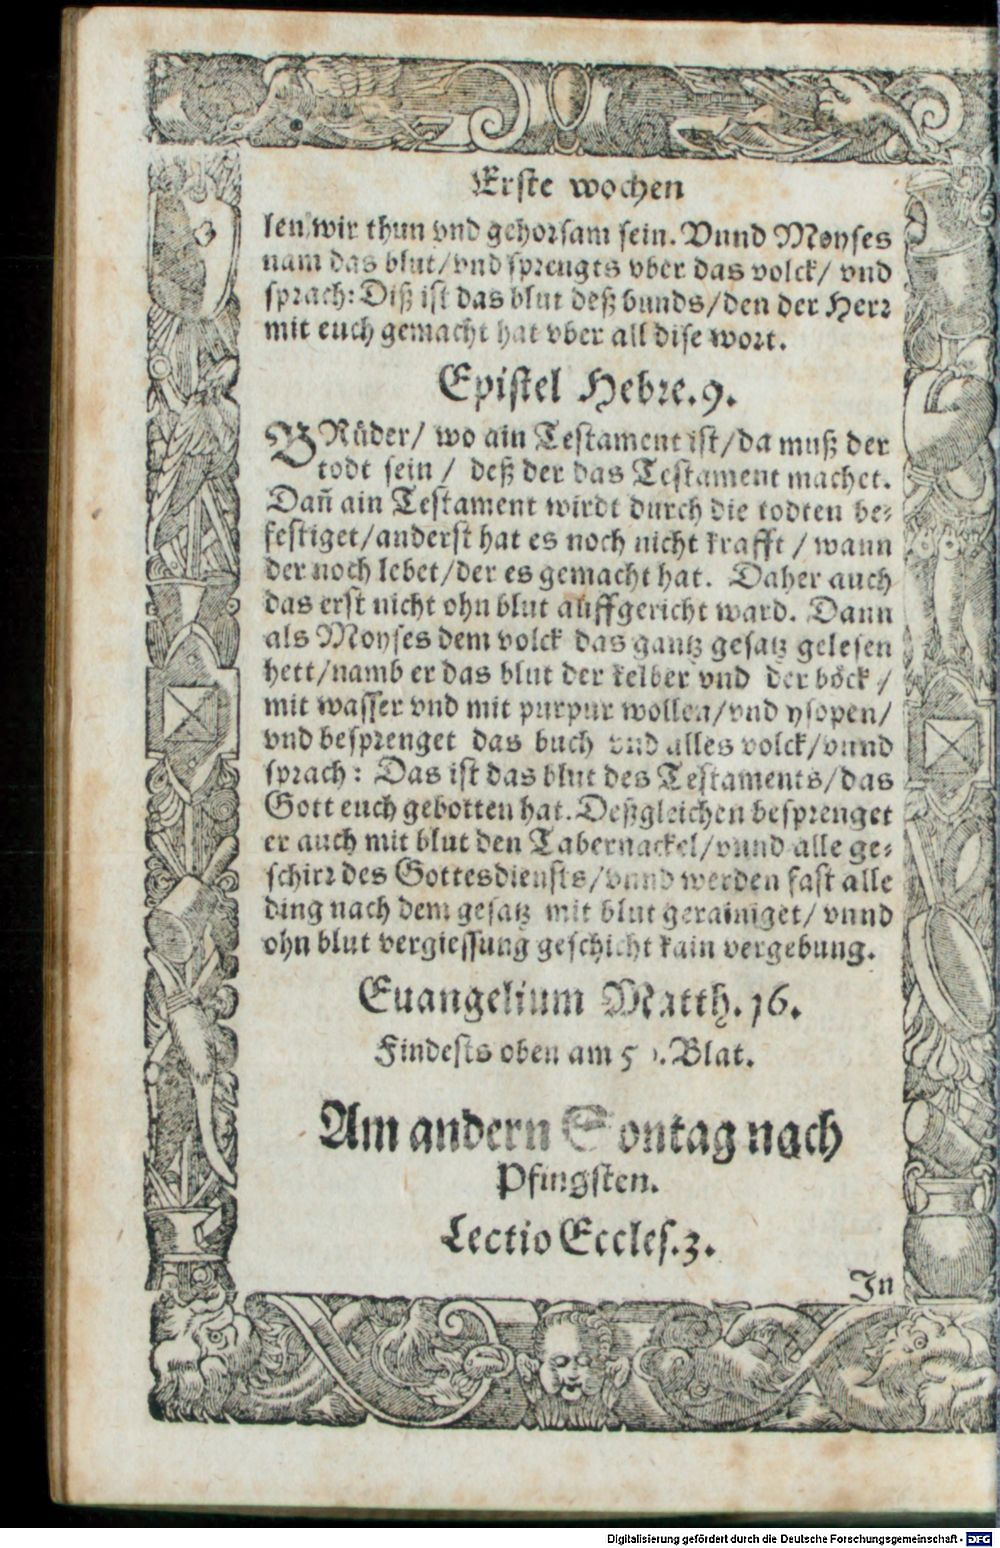 Erste wochen
len wir thun vnd gehorsam sein. Vnnd Moyses
nam das blut/ vnd sprengts vber das volck/ vnd
sprach: Diß ist das blut deß bunds/ den der Herr
mit euch gemacht hat vber all dise wort.
Epistel Hebre. 9.
BRüder/ wo ain Testament ist/ da muß der
todt sein / deß der das Testament machet.
Dañ ain Testament wirdt durch die todten be⸗
festiget/ anderst hat es noch nicht krafft / wann
der noch lebet/ der es gemacht hat. Daher auch
das erst nicht ohn blut auffgericht ward. Dann
als Moyses dem volck das gantz gesatz gelesen
hett/ namb er das blut der kelber vnd der böck /
mit wasser vnd mit purpur wollen/ vnd ysopen/
vnd besprenget das buch vnd alles volck/ vnnd
sprach: Das ist das blut des Testaments/ das
Gott euch gebotten hat. Deßgleichen besprenget
er auch mit blut den Tabernackel/ vnnd alle ge⸗
schirr des Gottesdiensts/ vnnd werden fast alle
ding nach dem gesatz mit blut gerainiget/ vnnd
ohn blut vergiessung geschicht kain vergebung.
Euangelium Matth. 16.
Findests oben am Blat.
Am andern Sontag nach
Pfingsten.
Lectio Eccles. 3.
In
Digitalisierung gefördert durch die Deutsche Forschungsgemeinschaft - DFG